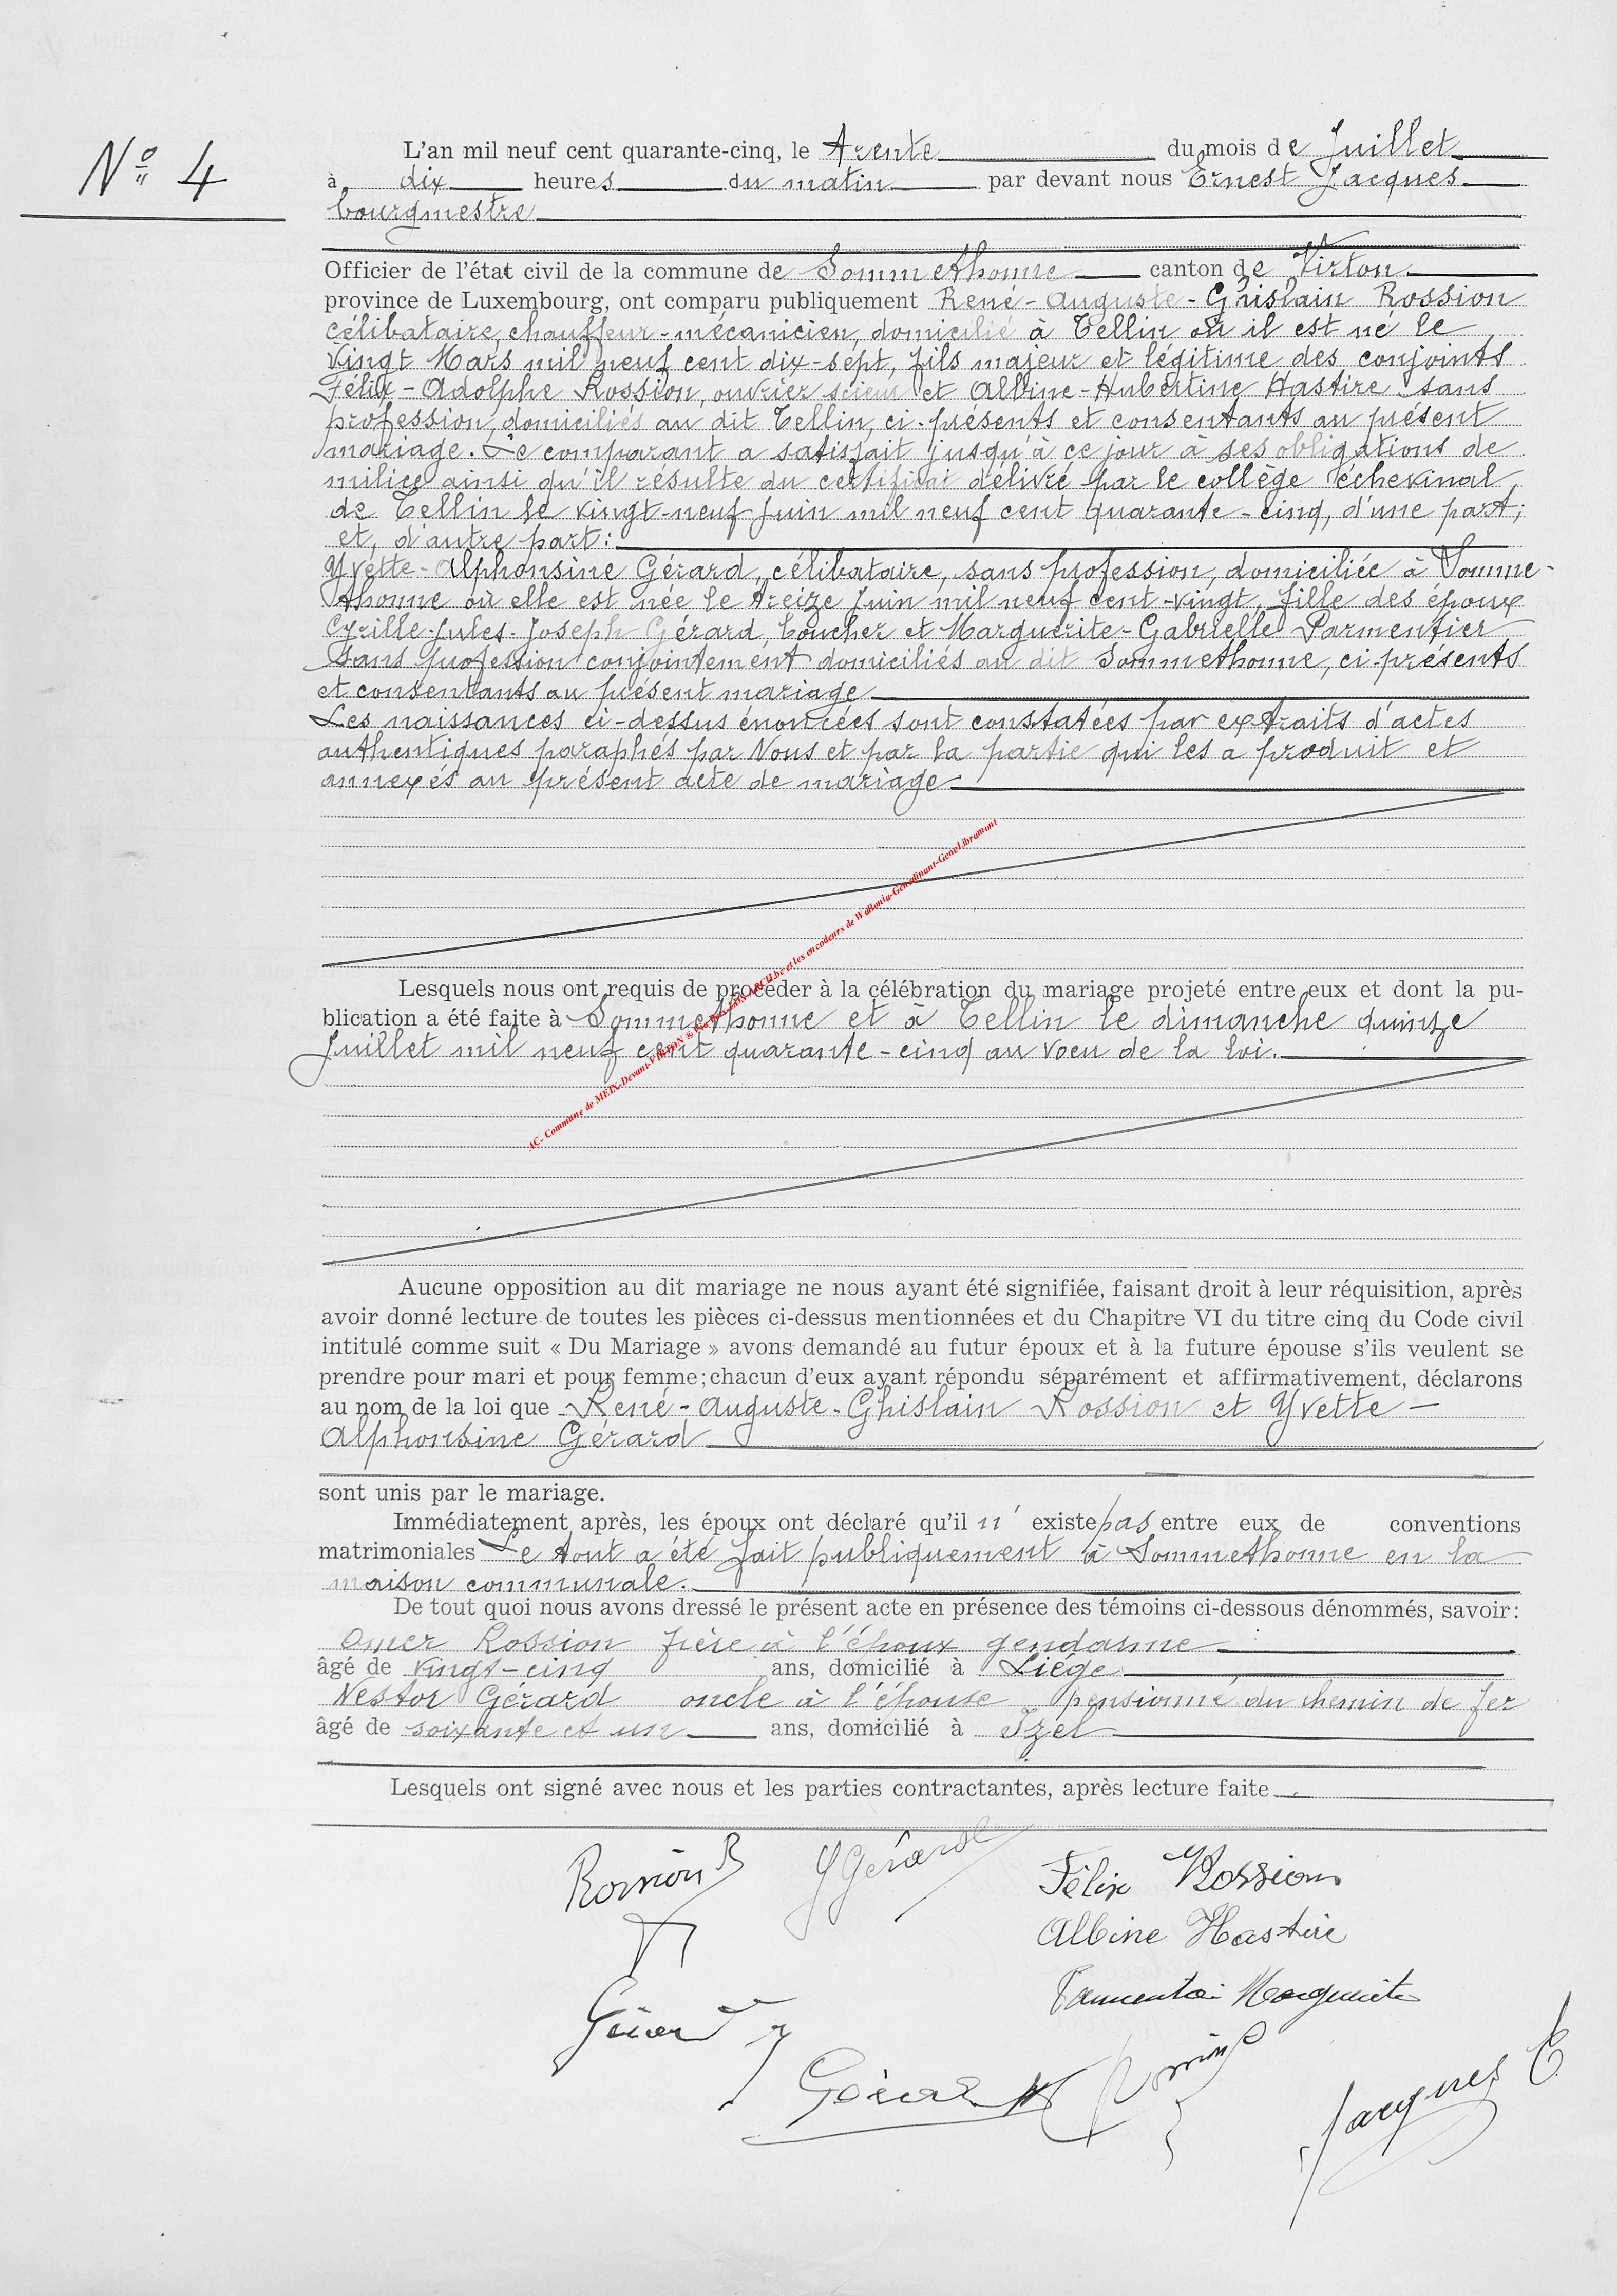 N° 4
L'an mil neuf cent quarante-cinq, le trente du mois de Juillet
à dix heures du matin par devant nous Ernest Jacques
bourgmestre
Officier de l'état civil de la commune de Sommethonne canton de Virton
province de Luxembourg, ont comparu publiquement René-Auguste-Ghislain Rossion
célibataire, chauffeur-mécanicien, domicilié à Tellin où il est né le
vingt Mars mil neuf cent dix-sept, fils majeur et légitime des conjoints
Félix-Adolphe Rossion, ouvrier scieur et Albine-Hubertine Hastire sans
profession, domiciliés au dit Tellin, ci-présents et consentants au présent
mariage. Le comparant a satisfait jusqu'à ce jour à ses obligations de
milice ainsi qu'il résulte du certificat délivré par le collège échevinal
de Tellin le vingt-neuf Juin mil neuf cent quarante-cinq, d'une part;
et, d'autre part:
Yvette-Alphonsine Gérard, célibataire, sans profession, domiciliée à Somme-
thonne où elle est née le treize Juin mil neuf cent-vingt, fille des époux
Cyrille-Jules-Joseph Gérard, boucher et Marguerite-Gabrielle Parmentier
sans profession conjointement domiciliés au dit Sommethonne, ci-présents
et consentants au présent mariage
Les naissances ci-dessus énoncées sont constatées par extraits d'actes
authentiques paraphés par Nous et par la partie qui les a produit et
annexés au présent acte de mariage.
Lesquels nous ont requis de procéder à la célébration du mariage projeté entre eux et dont la pu-
blication a été faite à Sommethonne et à Tellin le dimanche quinze
Juillet mil neuf cent quarante-cinq au voeu de la loi.
AC- Commune de MEIX-Devant-VIRTON ® Via Bus-LDS-ARCH.be et les encodeurs de Wallonia-Genedinant-GeneLibramont
Aucune opposition au dit mariage ne nous ayant été signifiée, faisant droit à leur réquisition, après
avoir donné lecture de toutes les pièces ci-dessus mentionnées et du Chapitre VI du titre cinq du Code civil
intitulé comme suit « Du Mariage » avons demandé au futur époux et à la future épouse s'ils veulent se
prendre pour mari et pour femme; chacun d'eux ayant répondu séparément et affirmativement, déclarons
au nom de la loi que René-Auguste-Ghislain Rossion et Yvette-
Alphonsine Gérard
sont unis par le mariage.
Immédiatement après, les époux ont déclaré qu'il n' existe pas entre eux de conventions
matrimoniales Le tout a été fait publiquement à Sommethonne en la
maison communale.
De tout quoi nous avons dressé le présent acte en présence des témoins ci-dessous dénommés, savoir:
Omer Rossion frère à l'époux gendarme
âgé de vingt-cinq ans, domicilié à Liége
Nestor Gérard oncle à l'épouse pensionné du chemin de fer
âgé de soixante et un ans, domicilié à Izel
Lesquels ont signé avec nous et les parties contractantes, après lecture faite
Rossion R YGérard Félix Rossion
Albine Hastire
Parmentier Marguerite
Gérard
Gérard N Rossion O
Jacques E